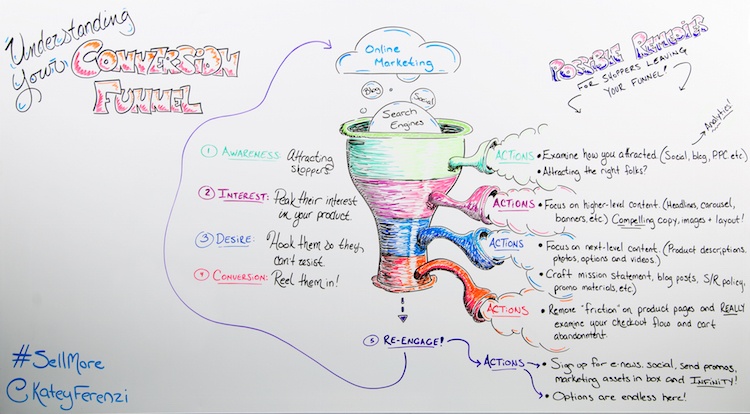 Understanding
Your Conversion
Funnel
Online
Marketing
Blog
Social
Search
Engines
Possible Remedies
for shoppers leaving
your funnel!
Analytics!
① Awareness: Attracting
shoppers
② Interest: Peak their interest
in your product.
③ Desire: Hook them so they
can't resist.
④ Conversion: Reel them in!
⑤ Re-engage!
Actions
• Examine how you attracted. (Social, blog, PPC etc)
• Attracting the right folks?
Actions
• Focus on higher-level content. (Headlines, carousel,
banners, etc) Compelling copy, images + layout!
Actions
• Focus on next-level content. (Product descriptions,
photos, options and videos.)
• Craft mission statement, blog posts, S/R policy,
promo materials, etc)
Actions
• Remove "friction" on product pages and REALLY
examine your checkout flow and cart
abandonment.
Actions
• Sign up for e-news, social, send promos,
marketing assets in box and INFINITY!
• Options are endless here!
#SellMore
@KateyFerenzi